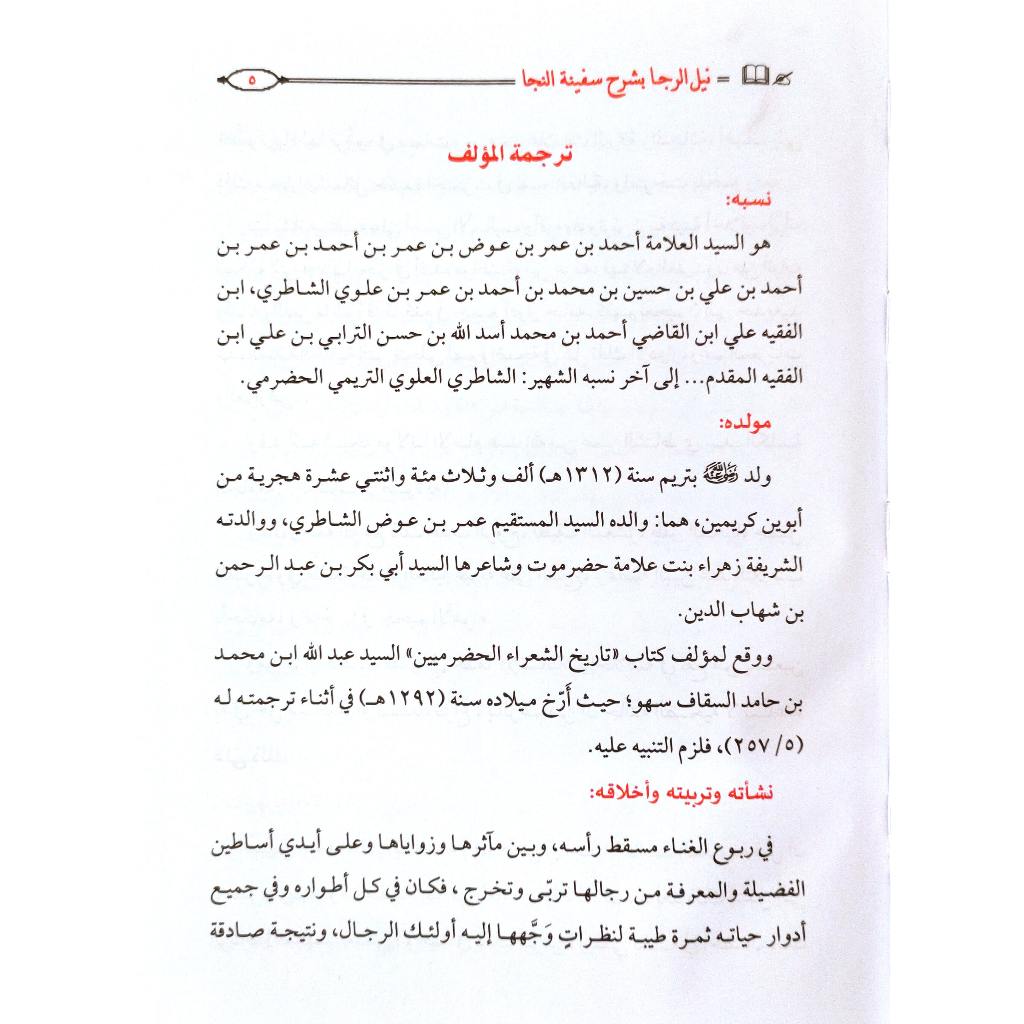 نيل الرجا بشرح سفينة النجا
٥
ترجمة المؤلف
نسبه:
هو السيد العلامة أحمد بن عمر بن عوض بن عمر بن أحمد بن عمر بن
أحمد بن علي بن حسين بن محمد بن أحمد بن عمر بن علوي الشاطري، ابن
الفقيه علي ابن القاضي أحمد بن محمد أسد الله بن حسن الترابي بن علي ابن
الفقيه المقدم... إلى آخر نسبه الشهير: الشاطري العلوي التريمي الحضرمي.
مولده:
ولد رضي الله عنه بتريم سنة (١٣١٢هـ) ألف وثلاث مئة واثنتي عشرة هجرية من
أبوين كريمين، هما: والده السيد المستقيم عمر بن عوض الشاطري، ووالدته
الشريفة زهراء بنت علامة حضرموت وشاعرها السيد أبي بكر بن عبد الرحمن
بن شهاب الدين.
ووقع لمؤلف كتاب «تاريخ الشعراء الحضرميين» السيد عبد الله ابن محمد
بن حامد السقاف سهو؛ حيث أَرّخ ميلاده سنة (١٢٩٢هـ) في أثناء ترجمته له
(٥/ ٢٥٧)، فلزم التنبيه عليه.
نشأته وتربيته وأخلاقه:
في ربوع الغناء مسقط رأسه، وبين مآثرها وزواياها وعلى أيدي أساطين
الفضيلة والمعرفة من رجالها تربّى وتخرج ، فكان في كل أطواره وفي جميع
أدوار حياته ثمرة طيبة لنظراتٍ وَجَّهها إليه أولئك الرجال، ونتيجة صادقة